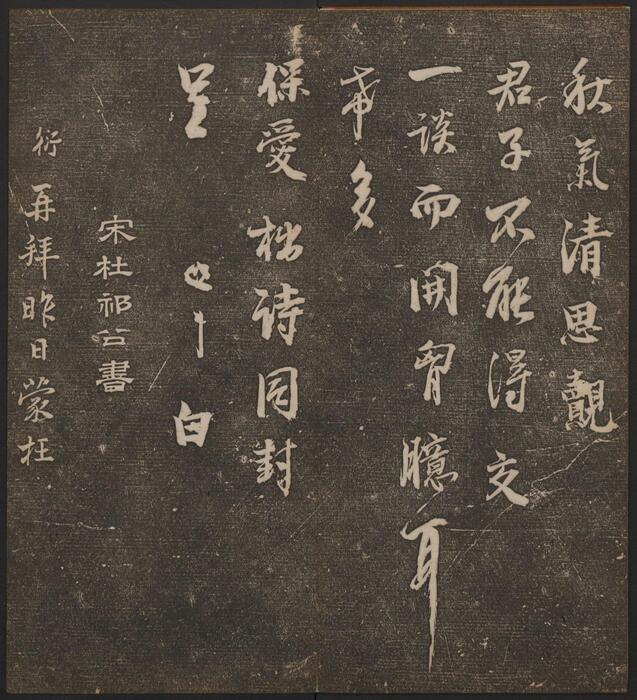 秋氣清思覿
君子不能得交
一談而開胷臆耳
希多
保愛拙诗同封
呈 白
宋杜祁公書
衍再拜昨日蒙枉